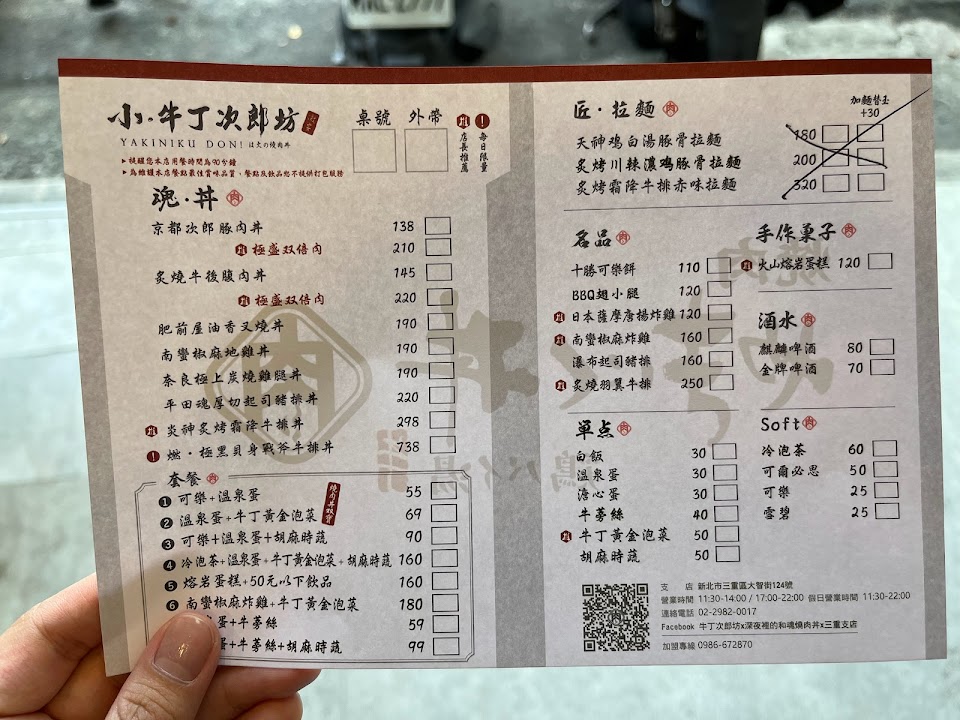 小·牛丁次郎坊
YAKINIKU DON! は火の燒肉丼
▶提醒您本店用餐時間為90分鐘
▶為維護本店餐點最佳賞味品質、餐點及飲品恕不提供打包服務
桌號 外帶
店長推薦
! 每日限量
魂·丼 肉
京都次郎豚肉丼 138
極盛双倍肉 210
炙燒牛後腹肉丼 145
極盛双倍肉 220
肥前屋油香叉燒丼 190
南蠻椒麻地雞丼 190
奈良極上炭燒雞腿丼 190
平田魂厚切起司豬排丼 220
炎神炙烤霜降牛排丼 298
! 燃·極黑貝身戰斧牛排丼 738
套餐 肉
燒肉丼双寶
1 可樂+溫泉蛋 55
2 溫泉蛋+牛丁黃金泡菜 69
3 可樂+溫泉蛋+胡麻時蔬 90
4 冷泡茶+溫泉蛋+牛丁黃金泡菜+胡麻時蔬 160
5 熔岩蛋糕+50元以下飲品 160
6 南蠻椒麻炸雞+牛丁黃金泡菜 180
蛋+牛蒡絲 59
蛋+牛蒡絲+胡麻時蔬 99
匠·拉麵 肉
加麵替玉
+30
天神鸡白湯豚骨拉麵 180
炙烤川辣濃鸡豚骨拉麵 200
炙烤霜降牛排赤味拉麵 320
名品 肉
十勝可樂餅 110
BBQ翅小腿 120
日本薩摩唐揚炸雞 120
南蠻椒麻炸雞 160
瀑布起司豬排 160
炙燒羽翼牛排 250
单点 肉
白飯 30
溫泉蛋 30
溏心蛋 30
牛蒡絲 40
牛丁黃金泡菜 50
胡麻時蔬 50
手作菓子 肉
火山熔岩蛋糕 120
酒水 肉
麒麟啤酒 80
金牌啤酒 70
Soft 肉
冷泡茶 60
可爾必思 50
可樂 25
雪碧 25
支 店 新北市三重區大智街124號
營業時間 11:30-14:00 / 17:00-22:00 假日營業時間 11:30-22:00
連絡電話 02-2982-0017
Facebook 牛丁次郎坊x深夜裡的和魂燒肉丼x三重支店
加盟專線 0986-672870